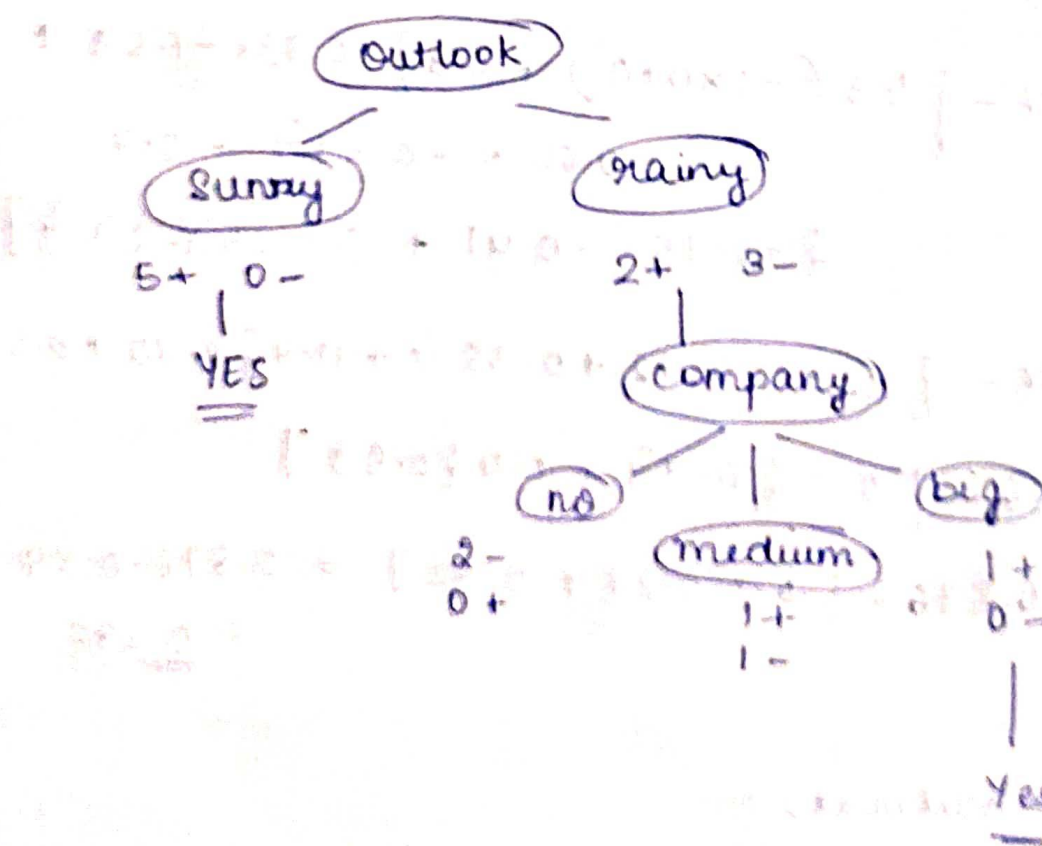 Outlook
Sunny rainy
5+ 0- 2+ 3-
YES
company
no big
medium
2- 1+
0+ 1+ 0-
1-
Yes